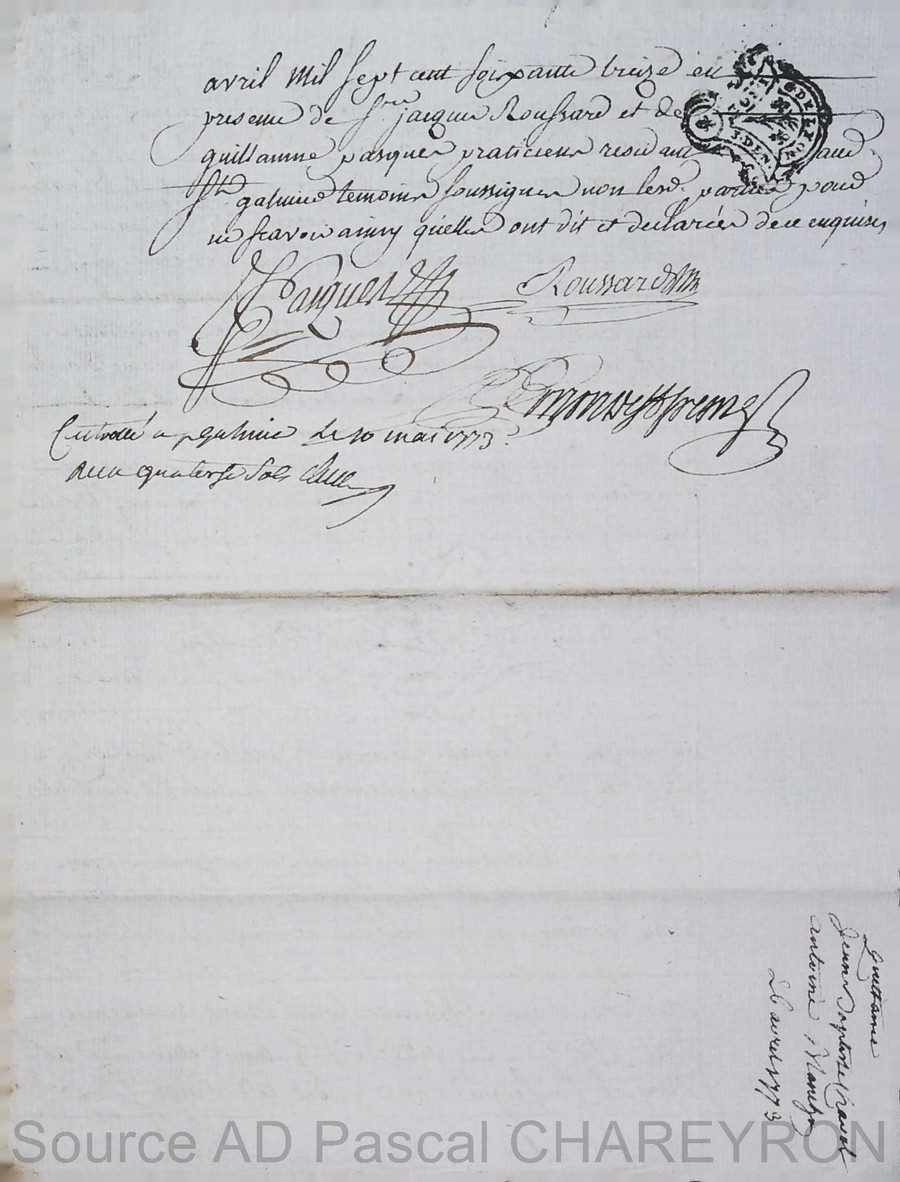 avril mil sept cent soixante treize en
presence de Sr. jacque Roussard et de
guillaume pasquer praticiens residant aud.
St. galmier temoins soussignes non lesd. parties pour
ne scavoir ainsy quelles ont dit et declarées de ce enquises
Pasquer
Roussard
Controllé a St galmier le 10 mai 1773.
Recu quatorze sols
DE LYON
DEN
Quittance
Jean Baptiste
antoine
26 avril 1773
Source AD Pascal CHAREYRON